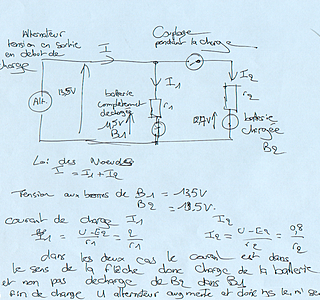 Alternateur
tension en sortie
en début de
charge
Couplage
pendant la charge
I
I1
I2
Alt.
13,5V
batterie
complètement
déchargée
11,5V
B1
r1
r2
12,7V
batterie
chargée
B2
Loi des Noeuds
I = I1 + I2
Tension aux bornes de B1 = 13,5V
B2 = 13,5V.
courant de charge I1
I2
I1 = U-E2 / r1 = 2 / r1
I2 = U-E2 / r2 = 0,8 / r2
dans les deux cas le courant est dans
le sens de la flèche donc charge de la batterie
et non pas décharge de B2 dans B1
fin charge U alternateur augmente et donc